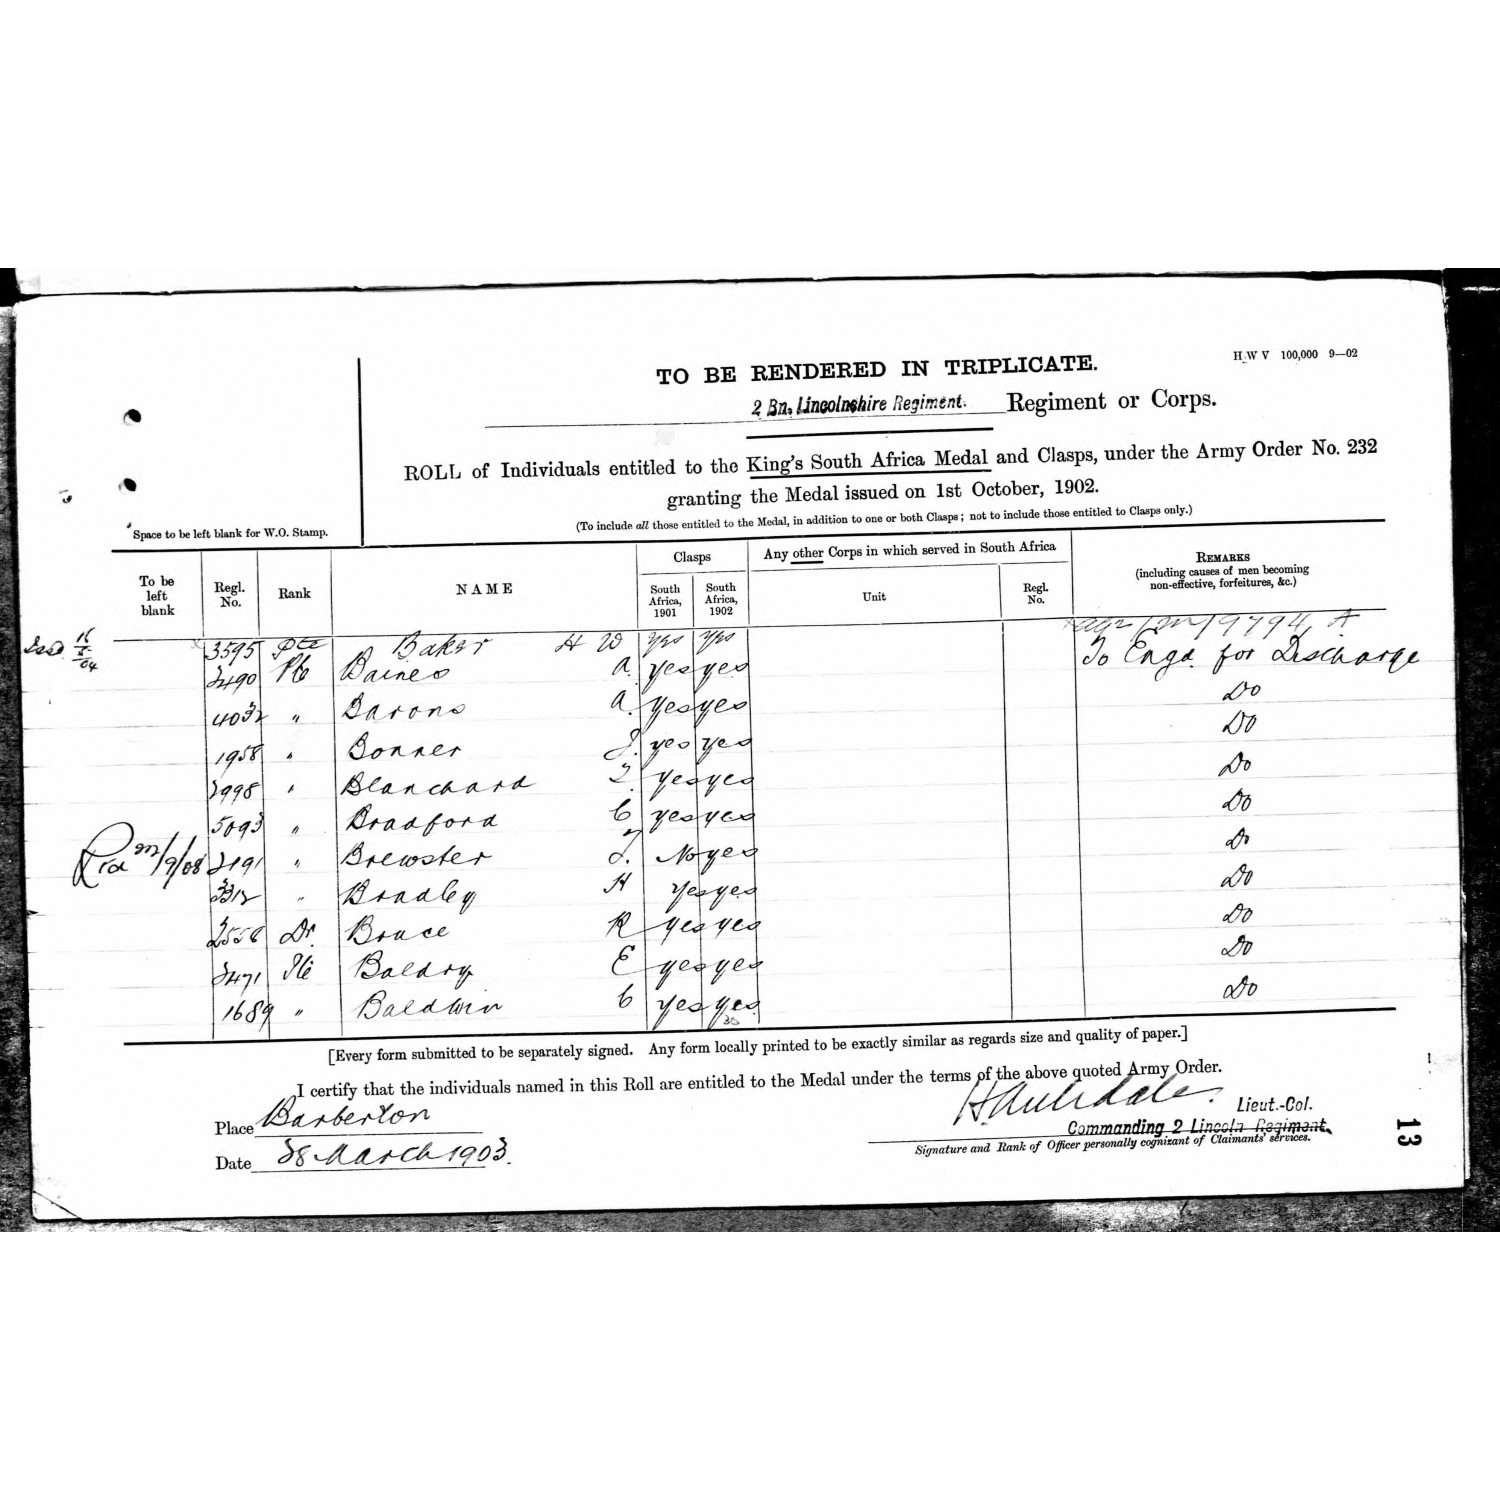 H W V 100,000 9—02
TO BE RENDERED IN TRIPLICATE.
2 Bn. Lincolnshire Regiment. Regiment or Corps.
ROLL of Individuals entitled to the King's South Africa Medal and Clasps, under the Army Order No. 232
granting the Medal issued on 1st October, 1902.
(To include all those entitled to the Medal, in addition to one or both Clasps; not to include those entitled to Clasps only.)
Space to be left blank for W.O. Stamp.
To be left blank
Regl. No.
Rank
NAME
Clasps
South Africa, 1901
South Africa, 1902
Any other Corps in which served in South Africa
Unit
Regl. No.
REMARKS
(including causes of men becoming non-effective, forfeitures, &c.)
16/5/04 3595 Pte Baker H W Yes Yes 9794
3490 Pte Baines A. Yes Yes To Engd. for Discharge
4032 " Barons A. Yes Yes Do
1958 " Bonner J. Yes Yes Do
2998 " Blanchard Yes Yes Do
5093 " Bradford C Yes Yes Do
/9/08 2191 " Brewster J. No Yes Do
3312 " Bradley H Yes Yes Do
2558 Dr. Bruce R Yes Yes Do
3471 Pte Baldry E Yes Yes Do
1689 " Baldwin C Yes Yes Do
[Every form submitted to be separately signed. Any form locally printed to be exactly similar as regards size and quality of paper.]
I certify that the individuals named in this Roll are entitled to the Medal under the terms of the above quoted Army Order.
Place Barberton
Lieut.-Col.
Commanding 2 Lincoln Regiment.
Signature and Rank of Officer personally cognizant of Claimants' services.
Date 28 March 1903.
13